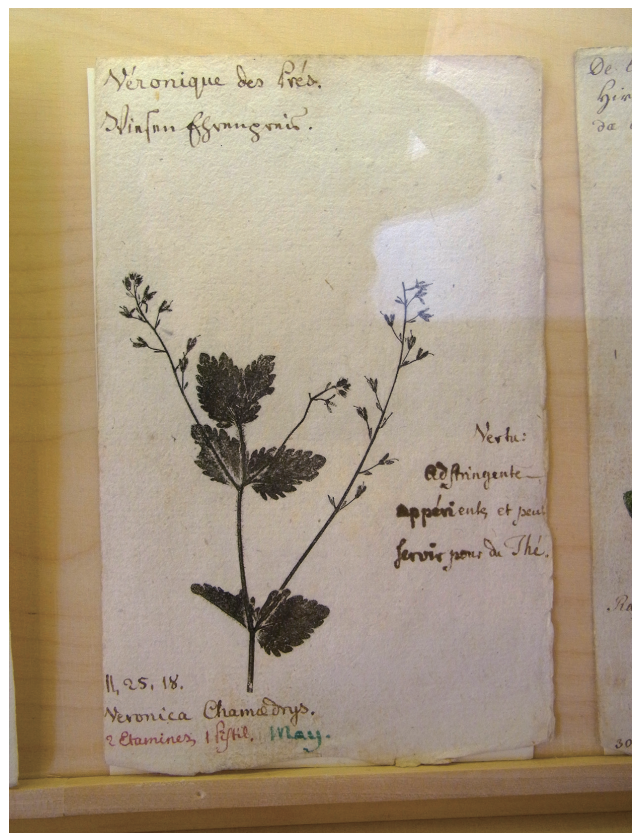 Véronique des Prés.
Wiesen Ehrenpreis.
Vertu:
Adstringente
appériente et peut
servir pour du Thé.
11, 25, 18.
Veronica Chamædrys.
2 Etamines, 1 Pistil. May.
De
Hir
da
30